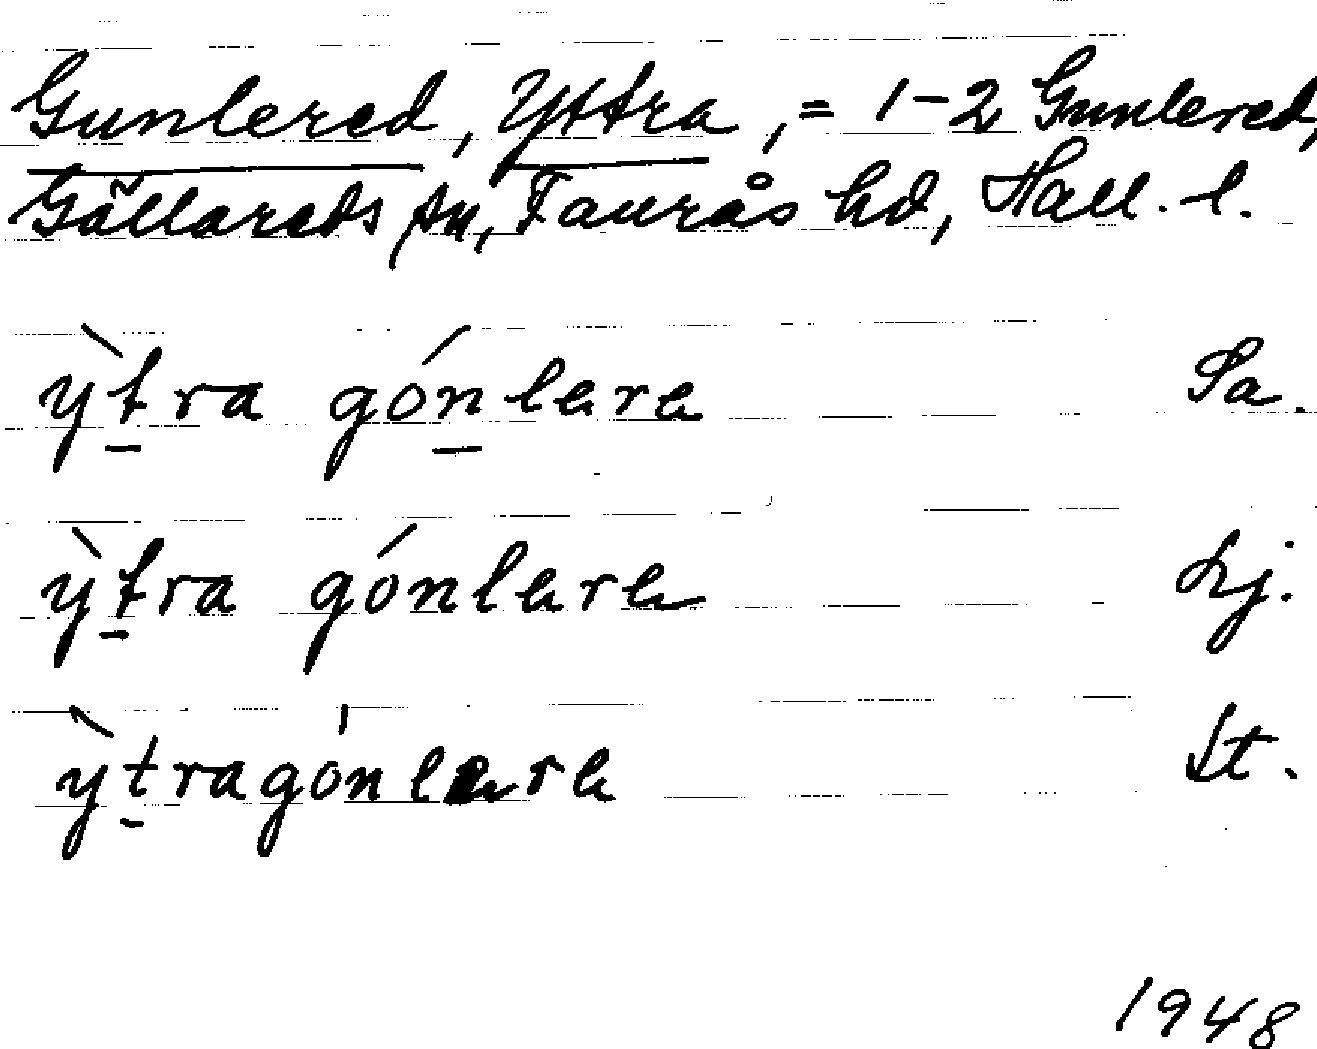 Gunlered, Yttra, = 1-2 Gunlered,
Gällareds sn, Faurås hd, Hall. l.
ỳtra gónlere Sa.
ỳtra gónlere Lj.
ỳtragónlere St.
1948